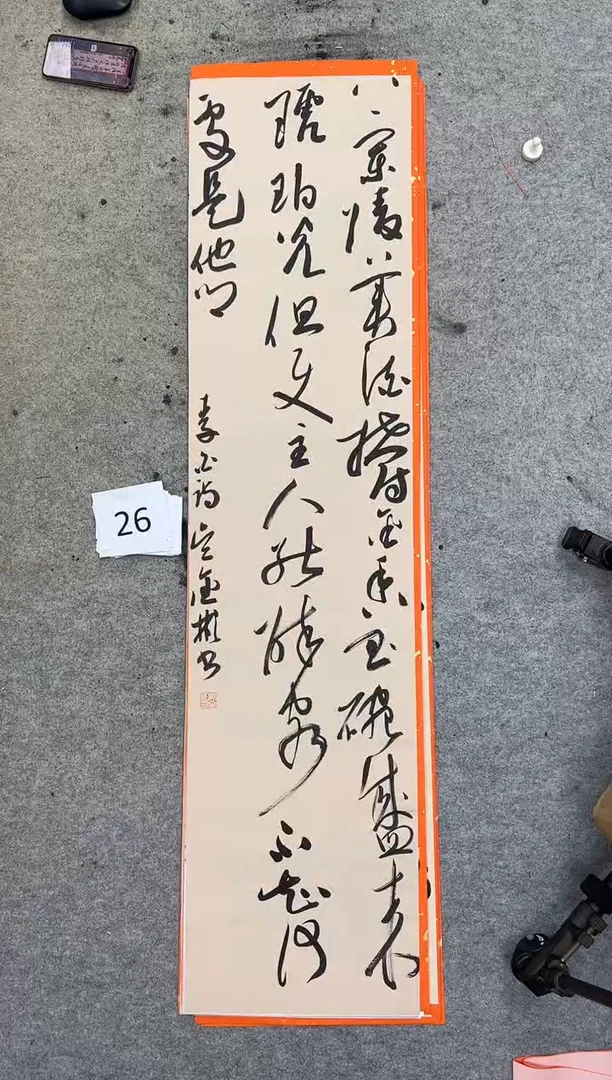 蘭陵美酒鬱金香玉碗盛来
琥珀光但使主人能醉客不知何
處是他乡
李白诗 金彬书
26